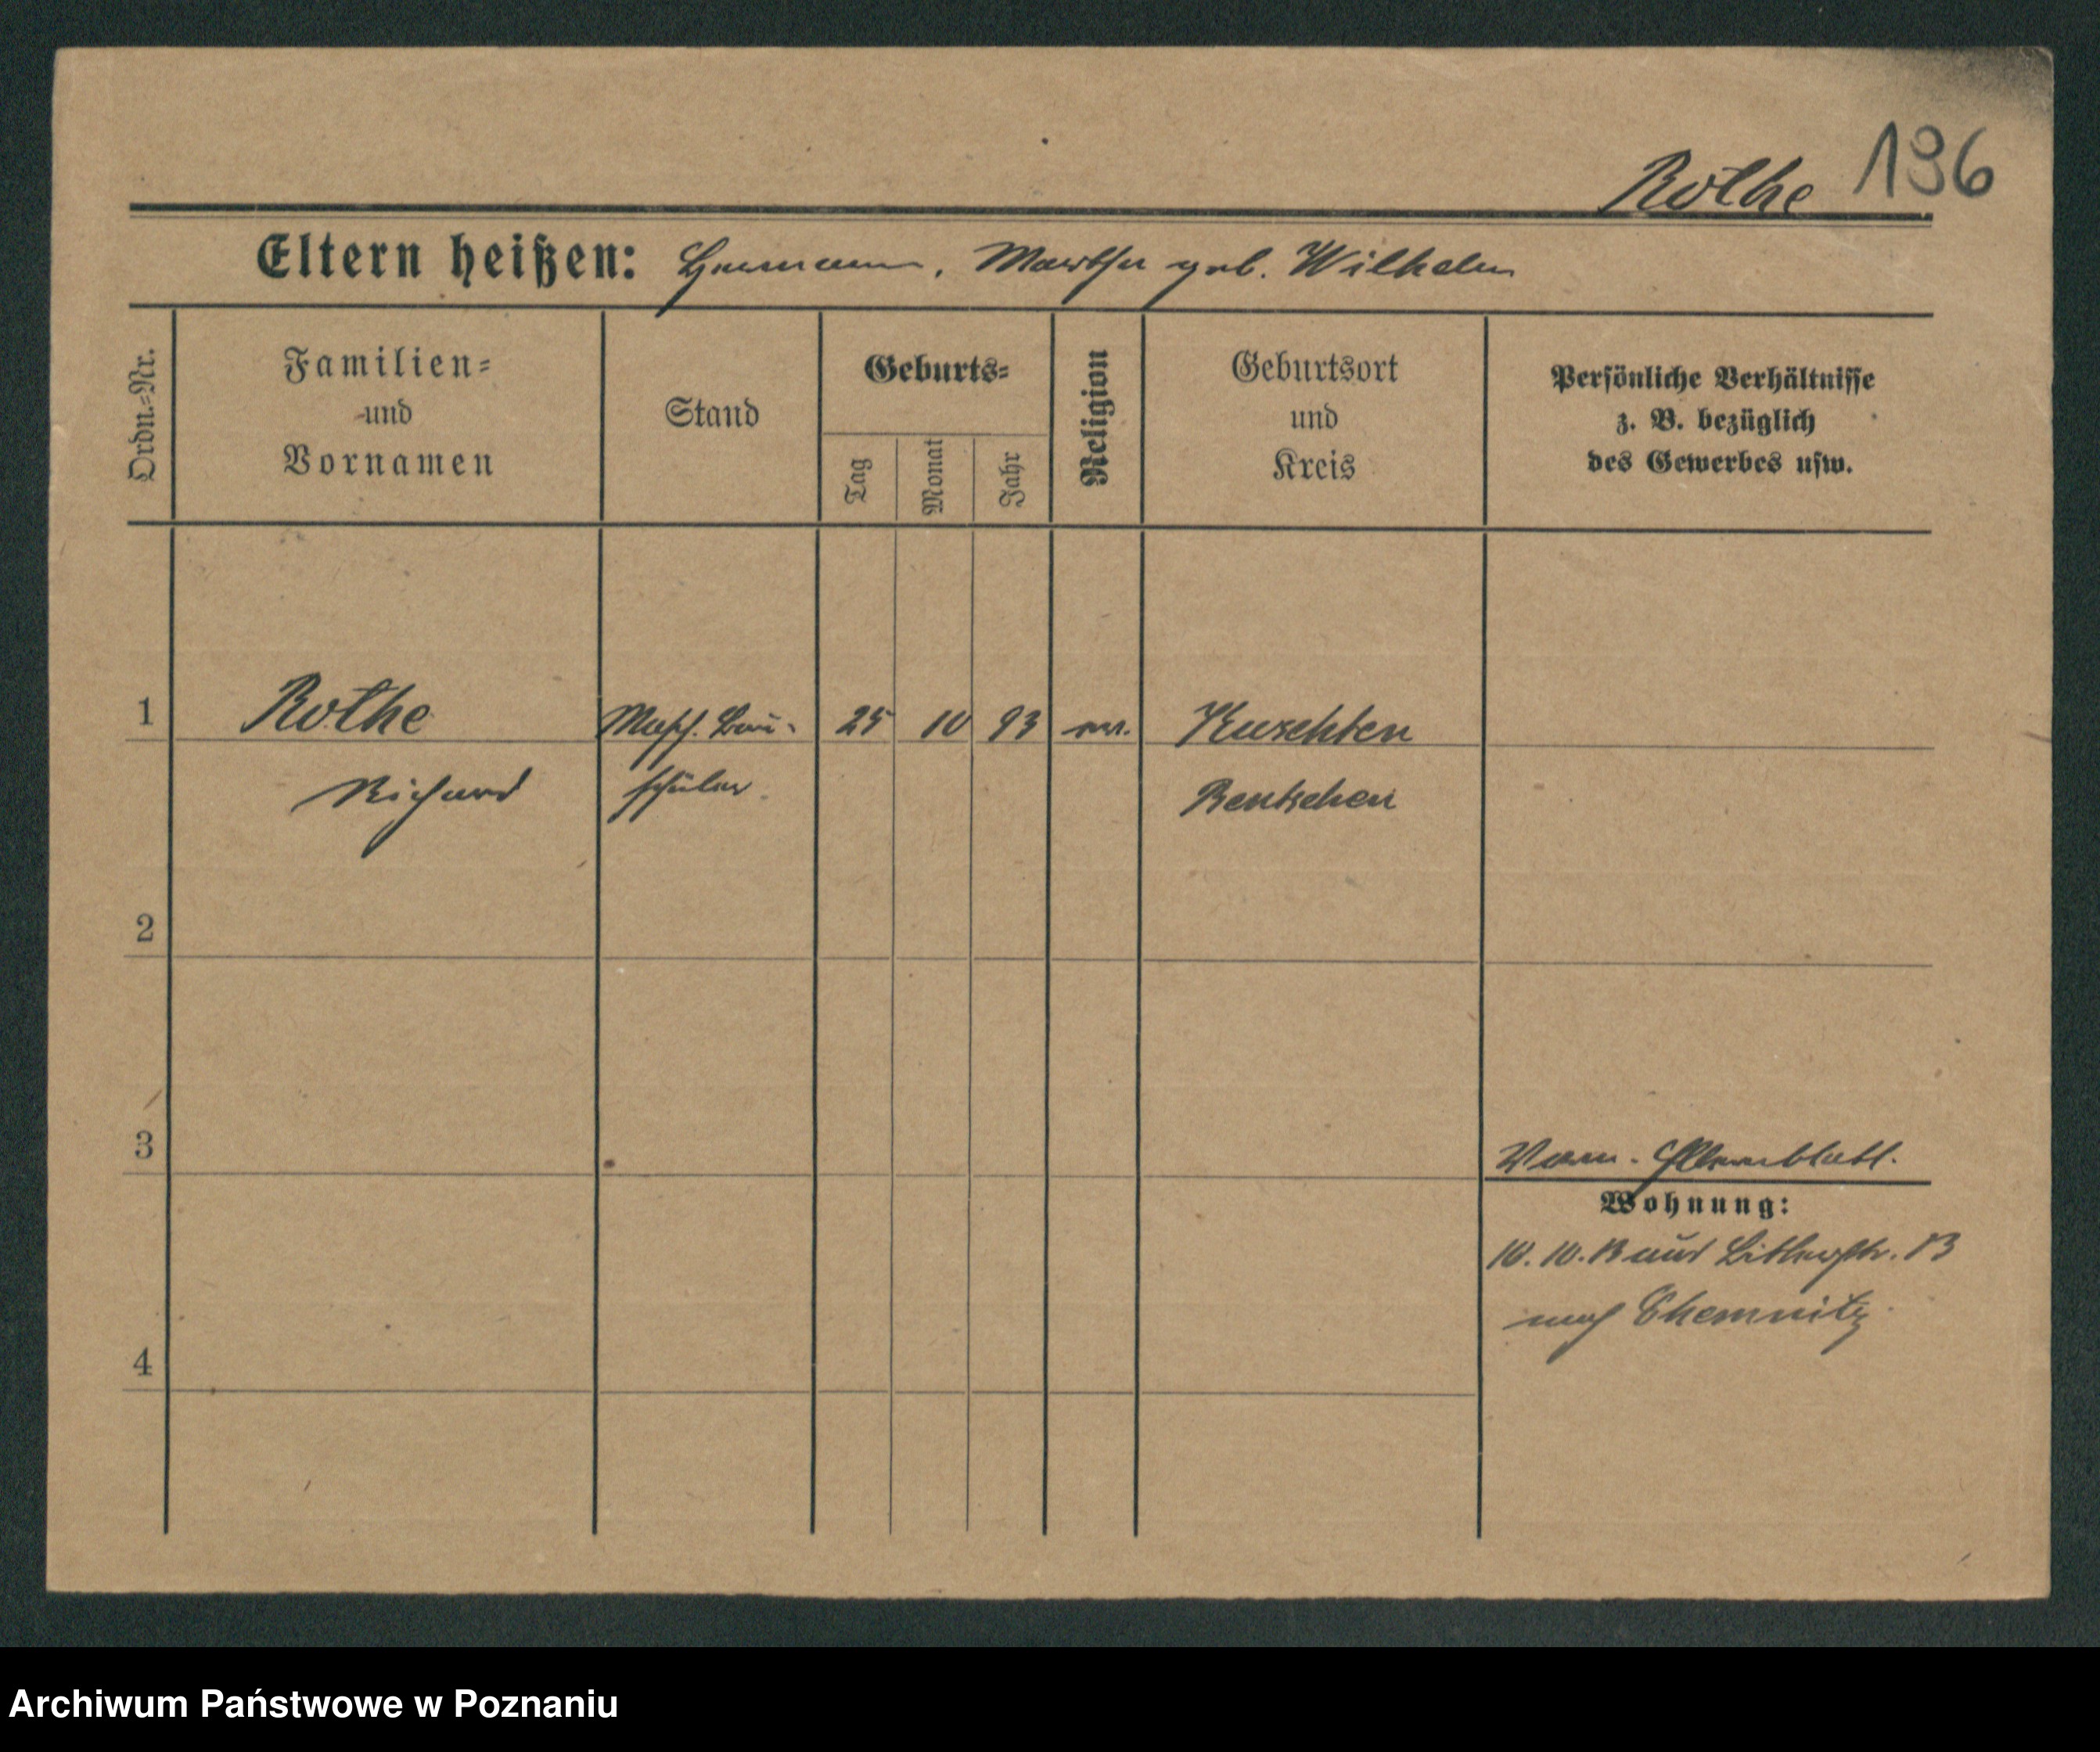 Rothe 196
Eltern heißen: Hermann, Martha geb. Wilhelm
Ordn.=Nr.
Familien= und Vornamen
Stand
Geburts=
Tag Monat Jahr
Religion
Geburtsort und Kreis
Persönliche Verhältnisse
z. B. bezüglich
des Gewerbes usw.
1 Rothe Masch. Bau- 25 10 93 ev. Kuschten
Richard schüler. Bentschen
2
3
Elternblatt.
Wohnung:
10. 10. 13 aus 13
nach Chemnitz
4
Archiwum Państwowe w Poznaniu